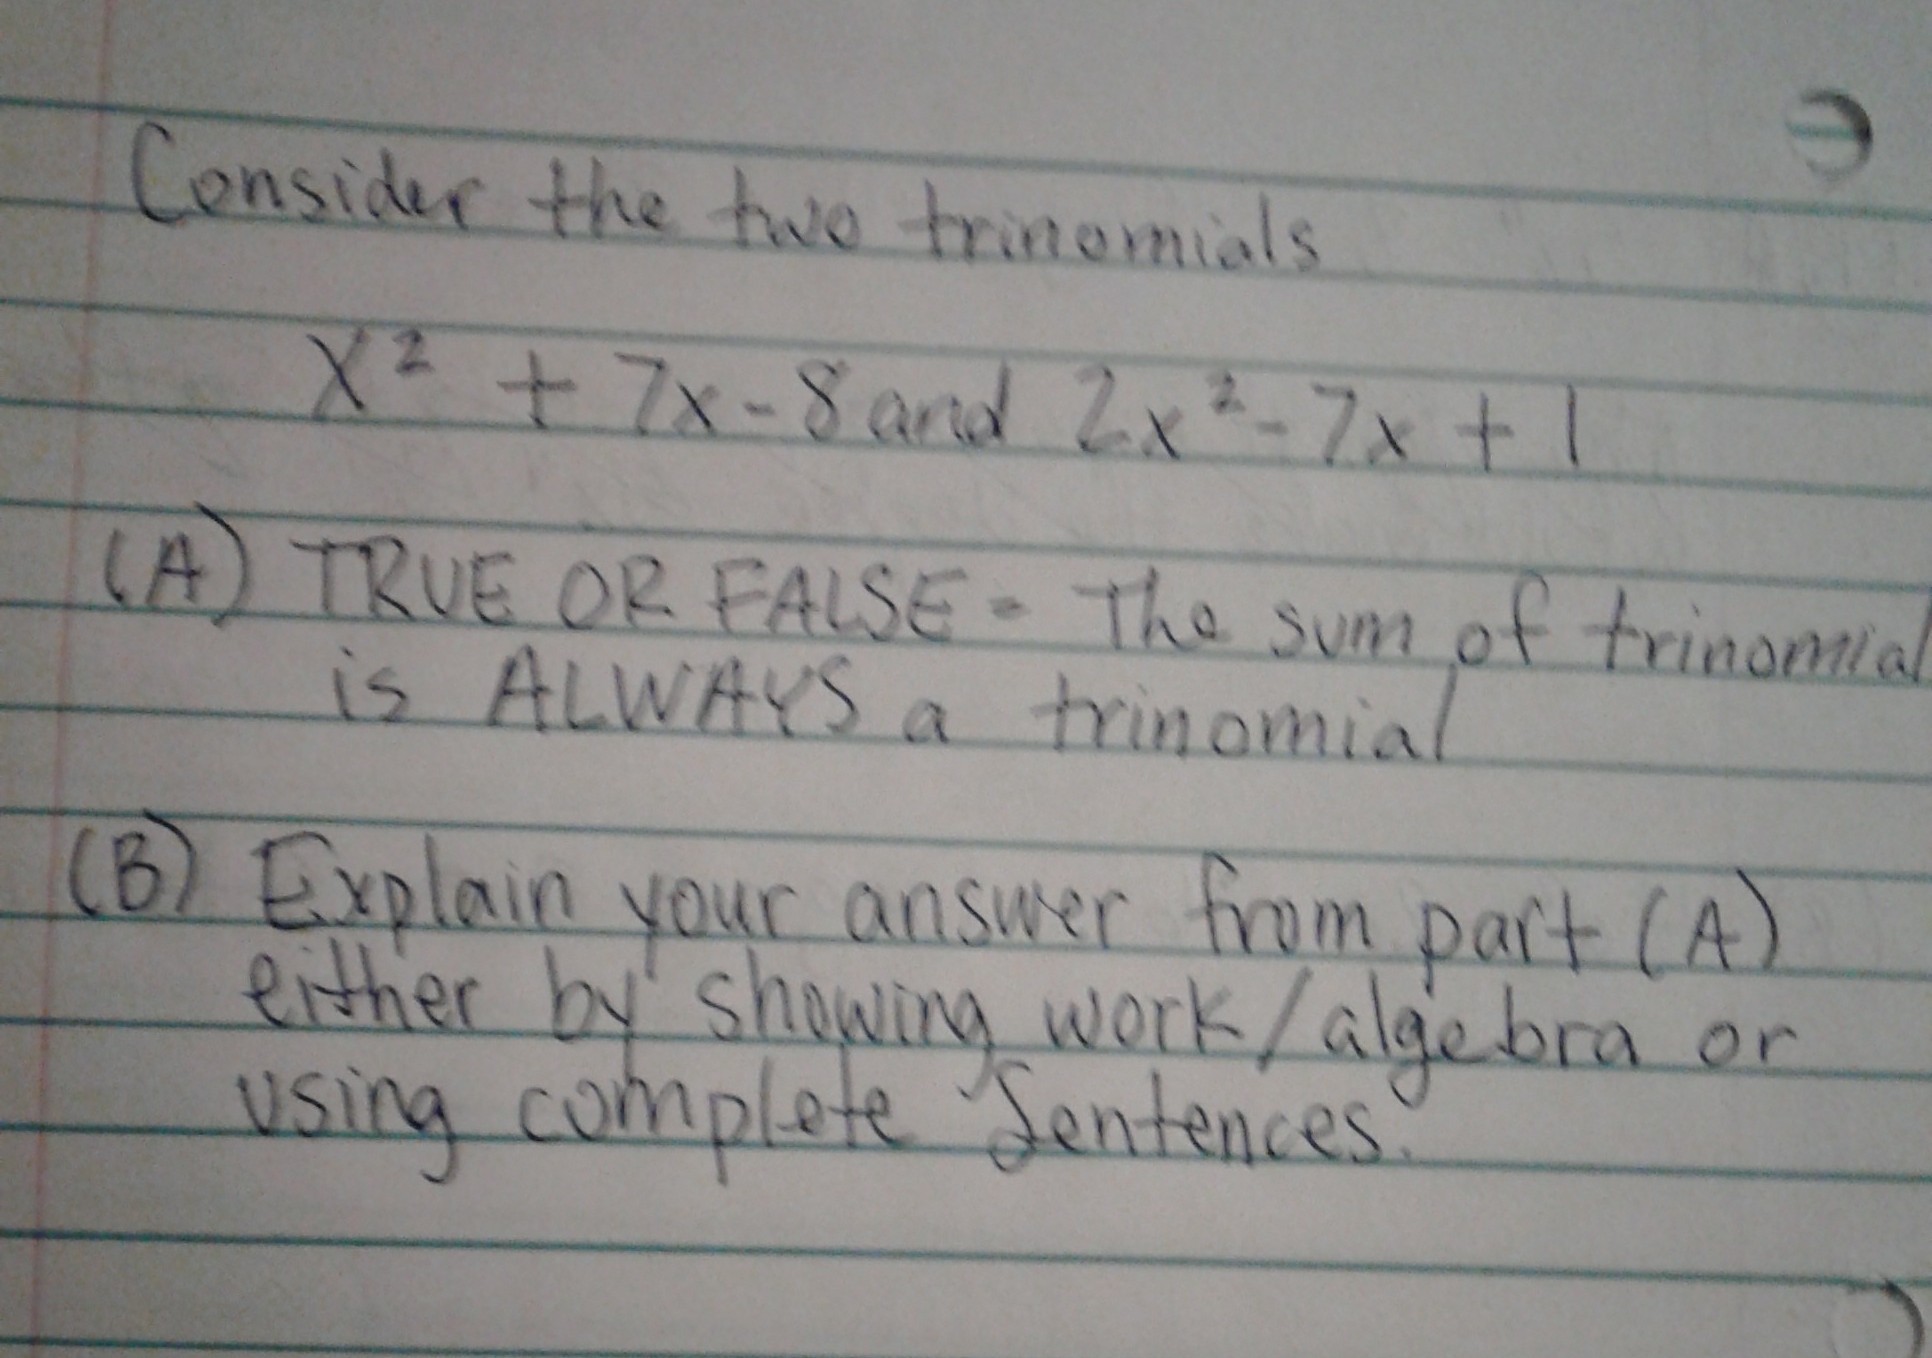 Consider the two trinomials
x² + 7x - 8 and 2x² - 7x + 1
(A) TRUE OR FALSE - The sum of trinomial
is ALWAYS a trinomial
(B) Explain your answer from part (A)
either by showing work/algebra or
using complete Sentences.